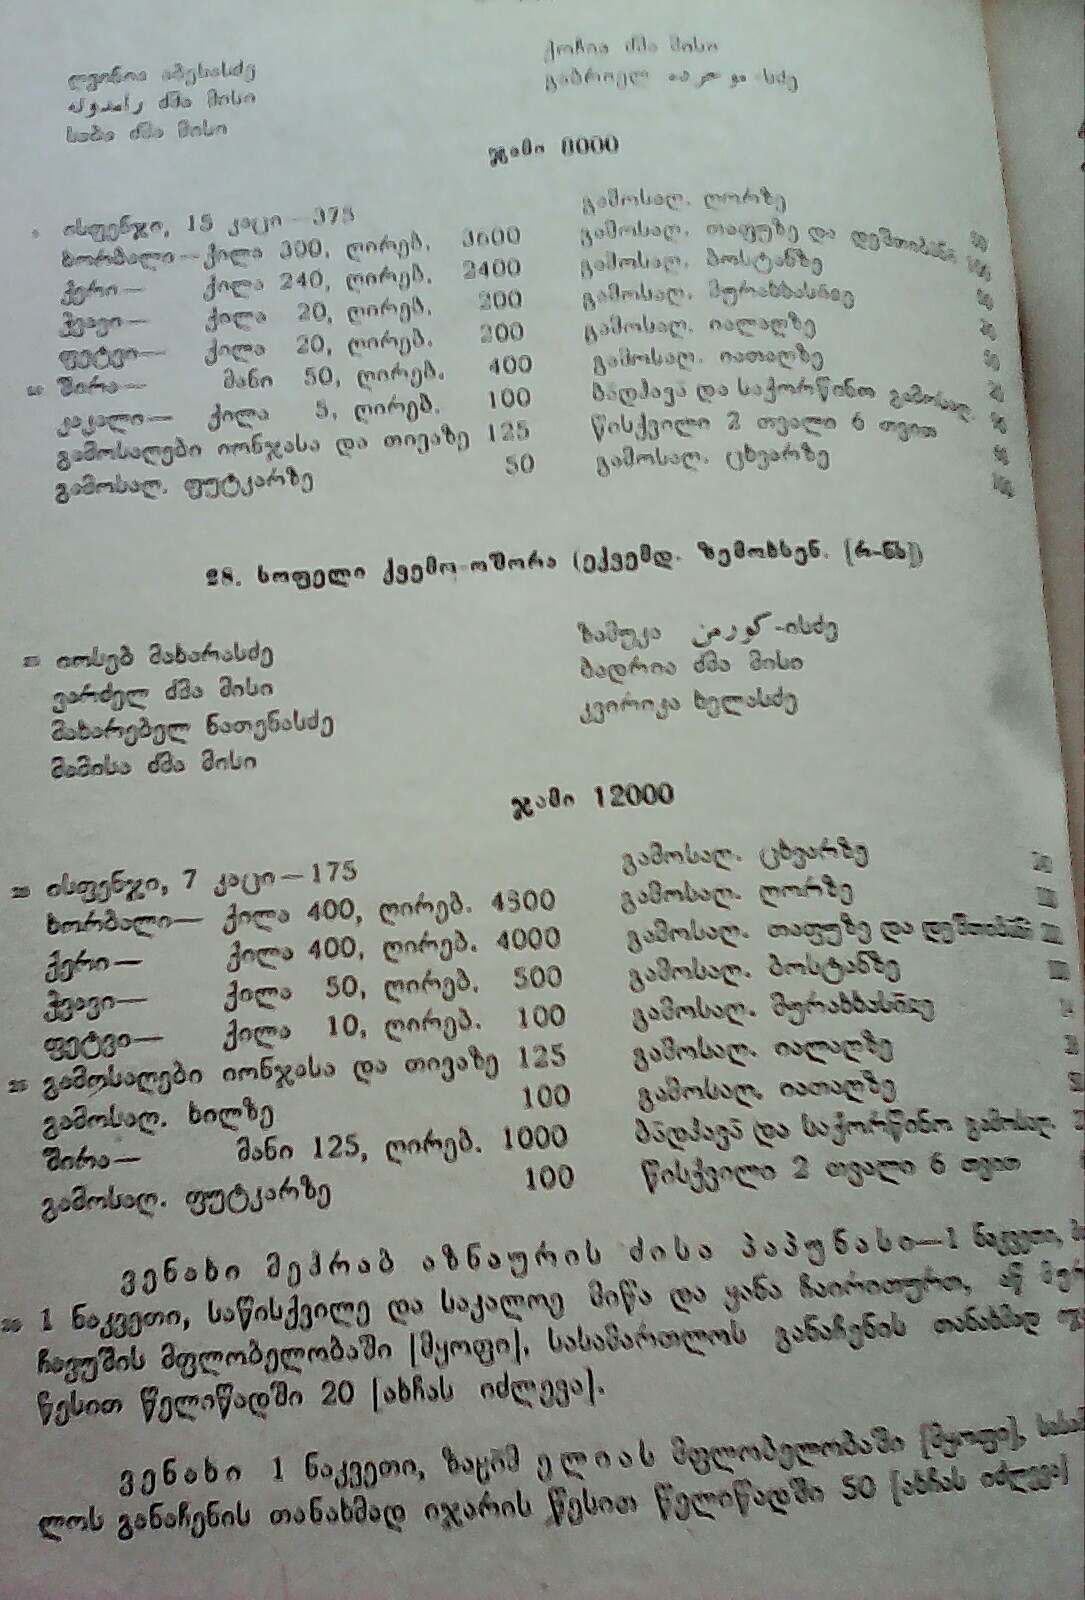 ღვინია აბესასძე
ძმა მისი
საბა ძმა მისი
ქოჩია ძმა მისი
გაბრიელ -სძე
ჯამი 8000
ისფენჯი, 15 კაცი—375
ხორბალი—ქილა 300, ღირებ. 3600
ქერი— ქილა 240, ღირებ. 2400
ჭვავი— ქილა 20, ღირებ. 200
ფეტვი— ქილა 20, ღირებ. 200
10 შირა— მანი 50, ღირებ. 400
კაკალი— ქილა 5, ღირებ. 100
გამოსაღები იონჯასა და თივაზე 125
გამოსაღ. ფუტკარზე 50
გამოსაღ. ღორზე
გამოსაღ. თაფუზე და დეშთიბანი
გამოსაღ. ბოსტანზე
გამოსაღ. მურაბბასჩიე
გამოსაღ. იალაღზე
გამოსაღ. იათაღზე
ბადჰავა და საქორწინო გამოსაღ.
წისქვილი 2 თვალი 6 თვით
გამოსაღ. ცხვარზე 100
28. სოფელი ქვემო-ოშორა (ექვემდ. ზემოხსენ. [რ-ნს])
15 იოსებ მახარასძე
ვარძელ ძმა მისი
მახარებელ ნათენასძე
მამისა ძმა მისი
ზამუკა كورمن-ისძე
ბადრია ძმა მისი
კვირიკა ხელასძე
ჯამი 12000
20 ისფენჯი, 7 კაცი—175
ხორბალი— ქილა 400, ღირებ. 4800
ქერი— ქილა 400, ღირებ. 4000
ჭვავი— ქილა 50, ღირებ. 500
ფეტვი— ქილა 10, ღირებ. 100
25 გამოსაღები იონჯასა და თივაზე 125
გამოსაღ. ხილზე 100
შირა— მანი 125, ღირებ. 1000
გამოსაღ. ფუტკარზე 100
გამოსაღ. ცხვარზე
გამოსაღ. ღორზე
გამოსაღ. თაფუზე და დეშთიბანი
გამოსაღ. ბოსტანზე
გამოსაღ. მურაბბასჩიე
გამოსაღ. იალაღზე
გამოსაღ. იათაღზე
ბადჰავა და საქორწინო გამოსაღ.
წისქვილი 2 თვალი 6 თვით
ვენახი მეჰრაბ აზნაურის ძისა პაპუნასა—1 ნაკვეთი,
30 1 ნაკვეთი, საწისქვილე და საკალოე მიწა და ყანა ჩაირითურთ, აწ
ჩავუშის მფლობელობაში [მყოფი], სასამართლოს განაჩენის თანახმად
წესით წელიწადში 20 [ახჩას იძლევა].
ვენახი 1 ნაკვეთი, ზაიმ ელიას მფლობელობაში [მყოფი],
ლოს განაჩენის თანახმად იჯარის წესით წელიწადში 50 [ახჩას იძლევა]